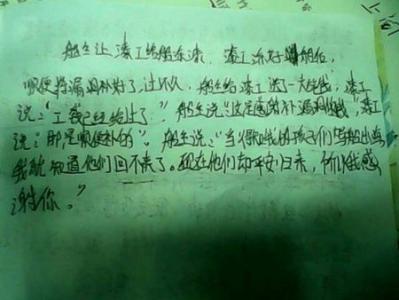 船主让漆工给船东漆，漆工涂好船后，
顺便将漏洞补好了，过不久，船主给漆工送了一大笔钱，漆工
说："工钱已经给过了"，船主说："这是感谢补漏洞的钱"，漆工
说："那是顺便补的"。船主说："当得知我的孩子们驾船出海
我就知道他们回不来了。现在他们却平安归来，所以我感
谢你。"